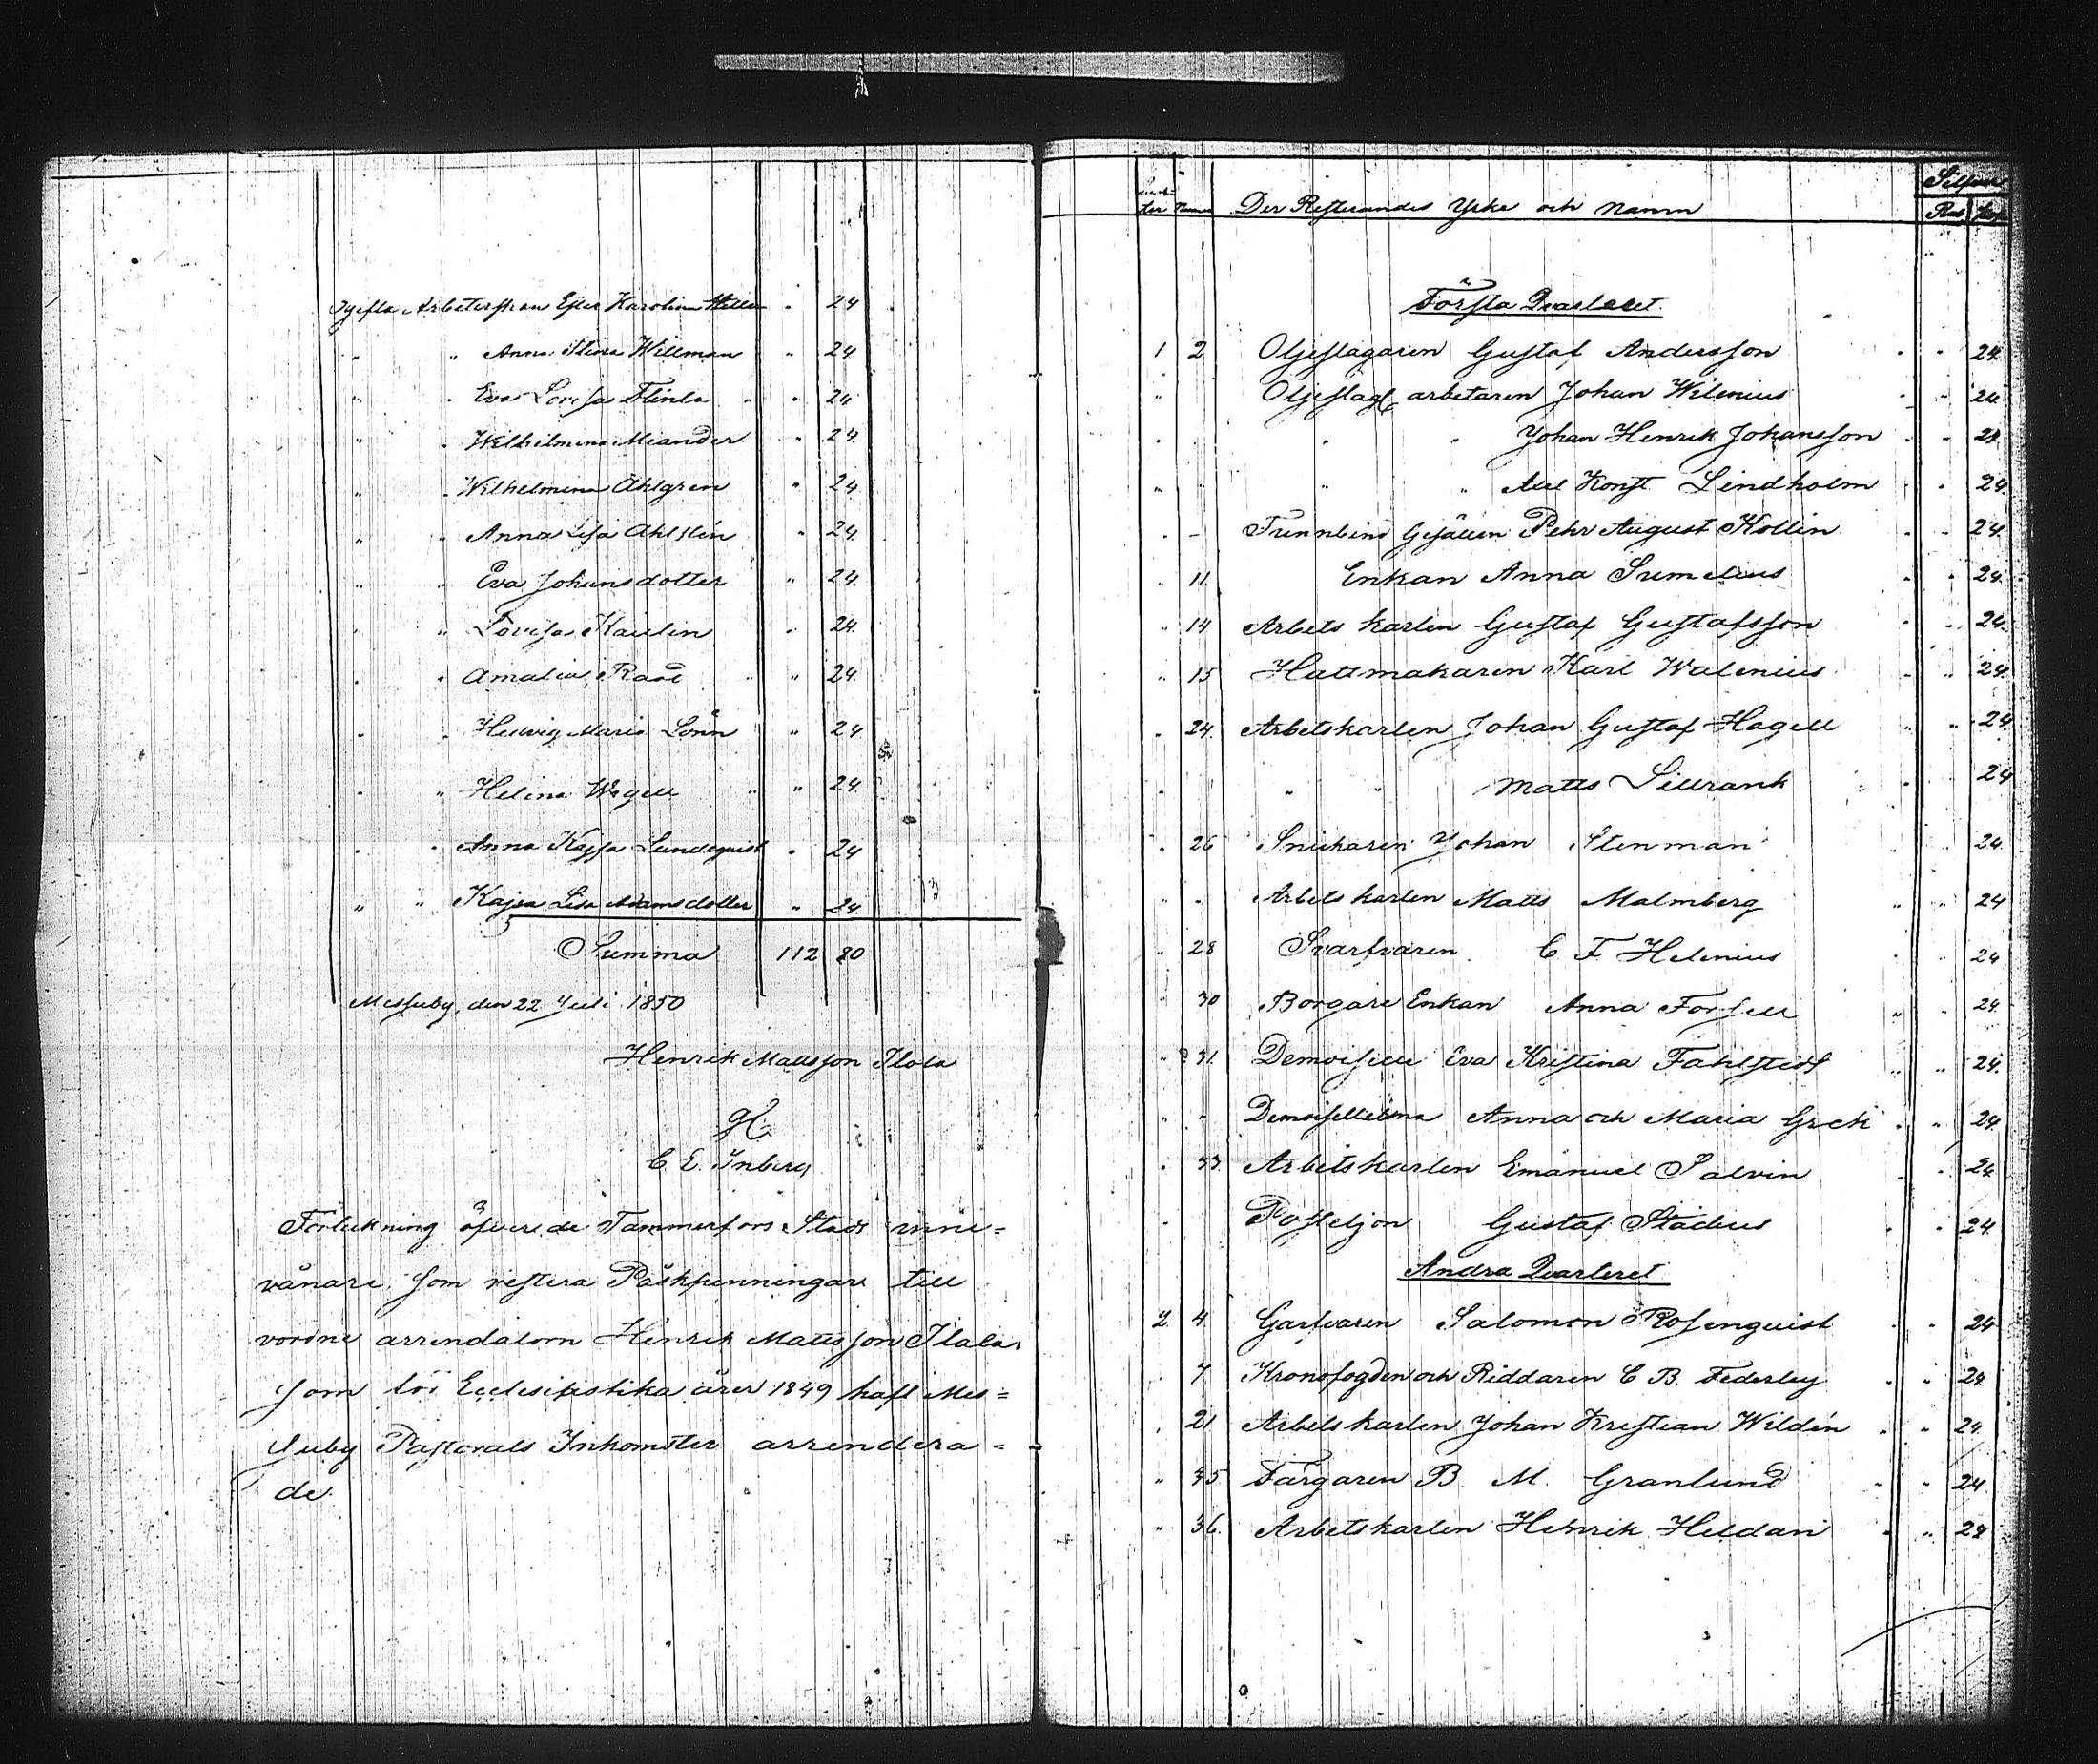 Ogifta Arbeterskan Ester Karolina Hellen " 24
" " Anna Stina Willman " 24
" " Eva Lovisa Flinta " 24
" " Wilhelmina Meander " 24
" " Wilhelmina Åhlgren " 24
" " Anna Lisa Ahlstén " 24
" " Eva Johansdotter " 24
" " Lovisa Kaulin " 24
" " Amalia Raad " 24
" " Hedvig Maria Lönn " 24
" " Helena Wagell " 24
" " Anna Kajsa Lundequist " 24
" " Kajsa Lisa Adamsdotter " 24
Summa 112 80
Messuby, den 22 Juli 1850
Henrik Mattsson Ilola
gl.
C E. Inberg
Förtekning öfver de Tammerfors Stads inne=
vånare som restera Påskpenningar till
vordne arrendatorn Henrik Mattsson Ilola,
som för Ecclesiastika året 1849 haft Mes=
suby Pastorats Inkomster arrendera=
de
Qvarter Numer Der Resterandes Yrke och Namn Silfver Rub Kop
Första Qvarteret.
1 2 Oljeslagaren Gustaf Andersson " 24
" Oljeslag arbetaren Johan Wilenius " 24
" " " Johan Henrik Johansson " 24
" " " " Axel Konst. Lindholm " 24
" - Tunnbind Gesällen Pehr August Kollin " 24
" 11. Enkan Anna Sumelius " 24
" 14 Arbetskarlen Gustaf Gustafsson " 24
" 15 Hattmakaren Karl Walenius " 24
" 24. Arbetskarlen Johan Gustaf Hagell " 24
" " " Matts Sillrank " 24
" 26 Snickaren Johan Stenman 24
" " Arbetskarlen Matts Malmberg " 24
" 28 Svarfvaren C F Helenius " 24
" 30 Borgare Enkan Anna Forsell " 24
" 31. Demoiselle Eva Kristina Fahlstedt " 24
" " Demoisellerna Anna och Maria Grek " 24
" 33. Arbetskarlen Emanuel Palvin " 24
" Postiljon Gustaf Stadius " 24
Andra Qvarteret
2 4. Garfvaren Salomon Rosenquist " 24
7 Kronofogden och Riddaren C B. Federley " 24
" 21 Arbetskarlen Johan Kristian Wildén " 24
" 35 Färgaren B. M. Granlund " 24
" 36. Arbetskarlen Henrik Heldan " 24